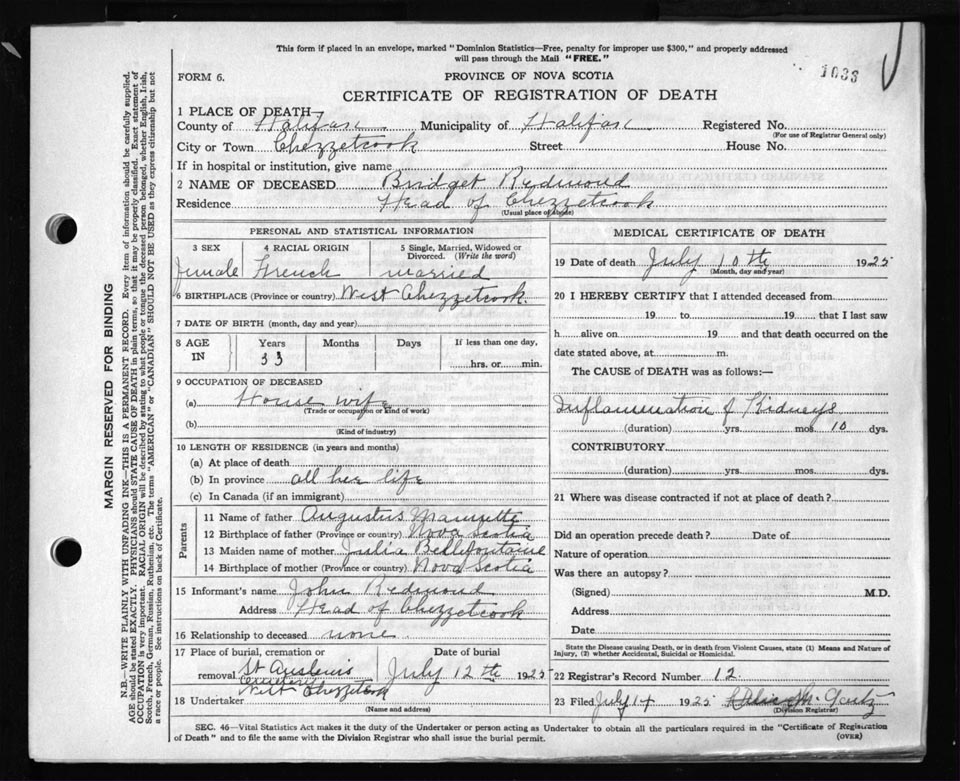 This form if placed in an envelope, marked "Dominion Statistics—Free, penalty for improper use $300," and properly addressed
will pass through the Mail "FREE."
1033
FORM 6.
PROVINCE OF NOVA SCOTIA
CERTIFICATE OF REGISTRATION OF DEATH
1 PLACE OF DEATH—
County of Halifax Municipality of Halifax Registered No.
(For use of Registrar General only)
City or Town Chezzetcook Street House No.
If in hospital or institution, give name
2 NAME OF DECEASED Bridget Redmond
Residence Head of Chezzetcook
(Usual place of abode)
PERSONAL AND STATISTICAL INFORMATION
3 SEX 4 RACIAL ORIGIN 5 Single, Married, Widowed or
Divorced. (Write the word)
Female French married
6 BIRTHPLACE (Province or country) West Chezzetcook.
7 DATE OF BIRTH (month, day and year)
8 AGE IN Years Months Days If less than one day,
33 hrs. or min.
9 OCCUPATION OF DECEASED
(a) House wife
(Trade or occupation or kind of work)
(b)
(Kind of industry)
10 LENGTH OF RESIDENCE (in years and months)
(a) At place of death
(b) In province all her life
(c) In Canada (if an immigrant)
Parents
11 Name of father Augustus
12 Birthplace of father (Province or country) Nova Scotia
13 Maiden name of mother Julia Bellefontaine
14 Birthplace of mother (Province or country) Nova Scotia
15 Informant's name John Redmond
Address Head of Chezzetcook
16 Relationship to deceased none
17 Place of burial, cremation or Date of burial
removal St Anslems July 12th 1925
West Chezzetcook
18 Undertaker
(Name and address)
MEDICAL CERTIFICATE OF DEATH
19 Date of death July 10th 1925
(Month, day and year)
20 I HEREBY CERTIFY that I attended deceased from
19 to 19 that I last saw
h alive on 19 and that death occurred on the
date stated above, at m.
The CAUSE of DEATH was as follows:—
Inflammation of Kidneys
(duration) yrs. mos. 10 dys.
CONTRIBUTORY
(duration) yrs. mos. dys.
21 Where was disease contracted if not at place of death?
Did an operation precede death? Date of
Nature of operation
Was there an autopsy?
(Signed) M.D.
Address
Date
State the Disease causing Death, or in death from Violent Causes, state (1) Means and Nature of
Injury, (2) whether Accidental, Suicidal or Homicidal.
22 Registrar's Record Number 12.
23 Filed July 14 1925
(Division Registrar)
SEC. 46—Vital Statistics Act makes it the duty of the Undertaker or person acting as Undertaker to obtain all the particulars required in the "Certificate of Registration
of Death" and to file the same with the Division Registrar who shall issue the burial permit.
(OVER)
MARGIN RESERVED FOR BINDING
N.B.—WRITE PLAINLY WITH UNFADING INK—THIS IS A PERMANENT RECORD. Every item of information should be carefully supplied.
AGE should be stated EXACTLY. PHYSICIANS should STATE CAUSE OF DEATH in plain terms, so that it may be properly classified. Exact statement of
OCCUPATION is very important. RACIAL ORIGIN will be described by stating to what people or tongue the deceased person belonged, whether English, Irish,
Scotch, French, German, Russian, Ruthenian, etc. The terms "AMERICAN" or "CANADIAN" SHOULD NOT BE USED as they express citizenship but not
a race or people. See instructions on back of Certificate.